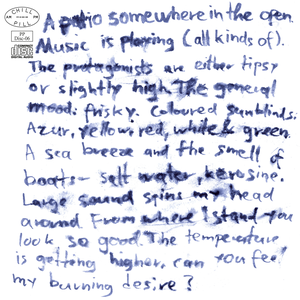 CHILL
PILL
PP
Disc-06
COMPACT
disc
DIGITAL AUDIO
A patio somewhere in the open.
Music is playing (all kinds of).
The protagonists are either tipsy
or slightly high. The general
mood: frisky. Coloured sunblinds:
Azur, yellow, red, white & green.
A sea breeze and the smell of
boats - salt water, kerosine.
Large sound spins my head
around From where I stand you
look so good. The temperature
is getting higher, can you feel
my burning desire?